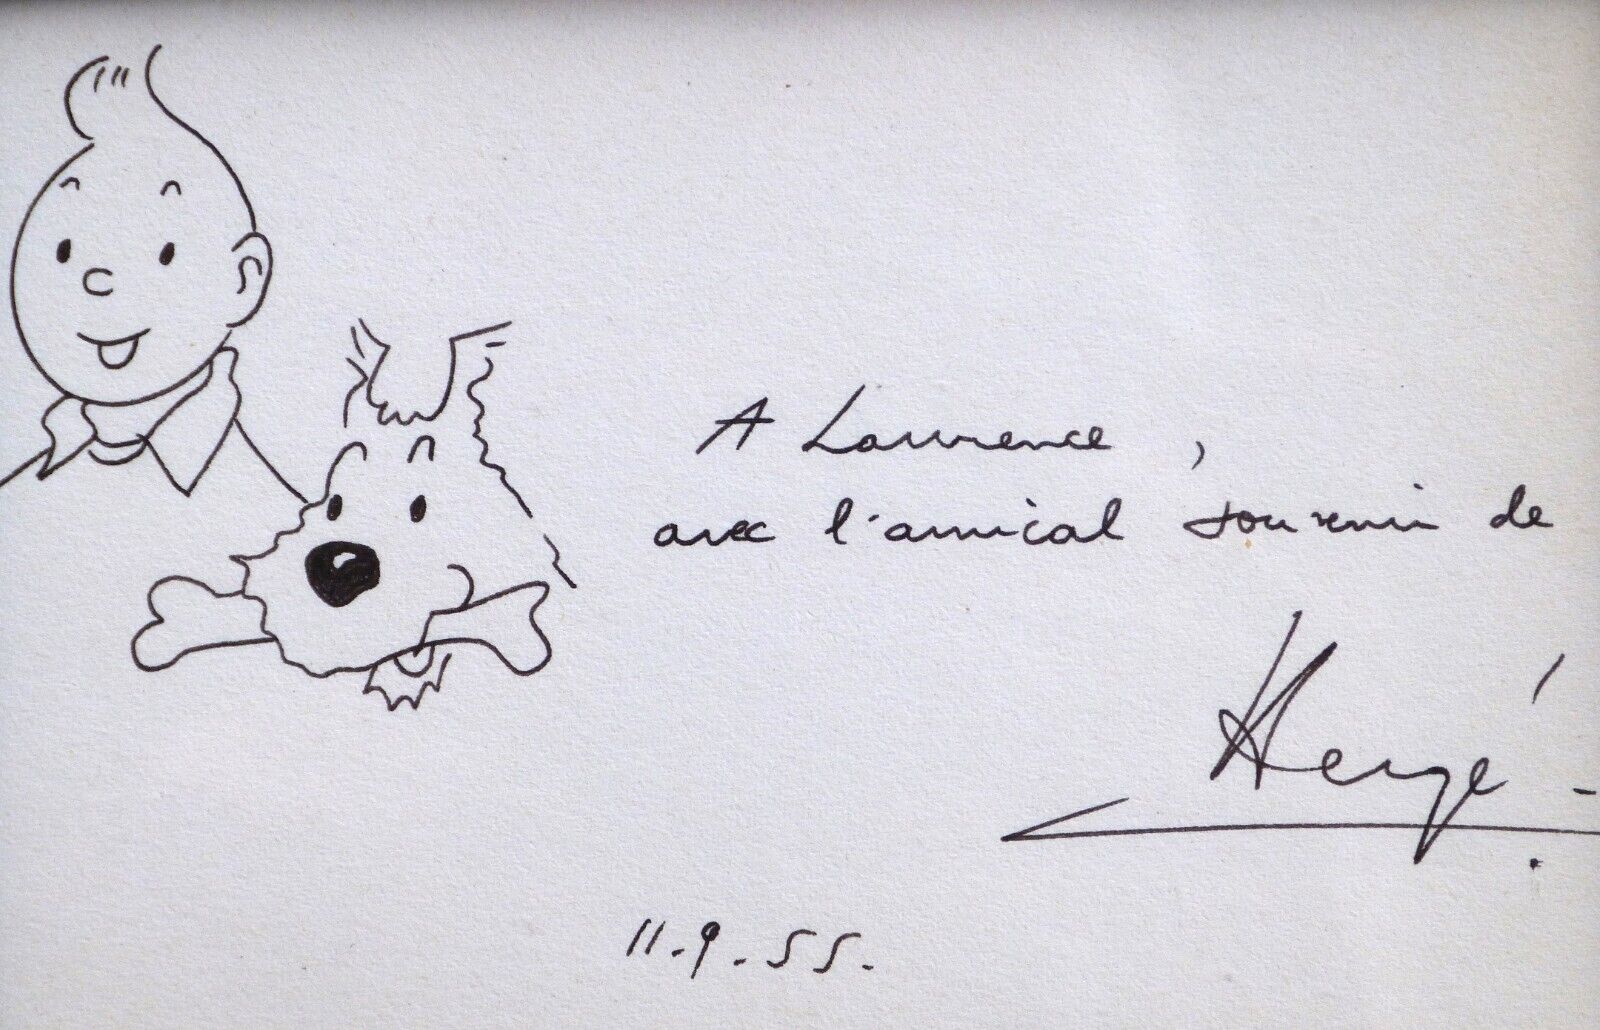 A Laurence,
avec l'amical souvenir de
Hergé.
11.9.55.